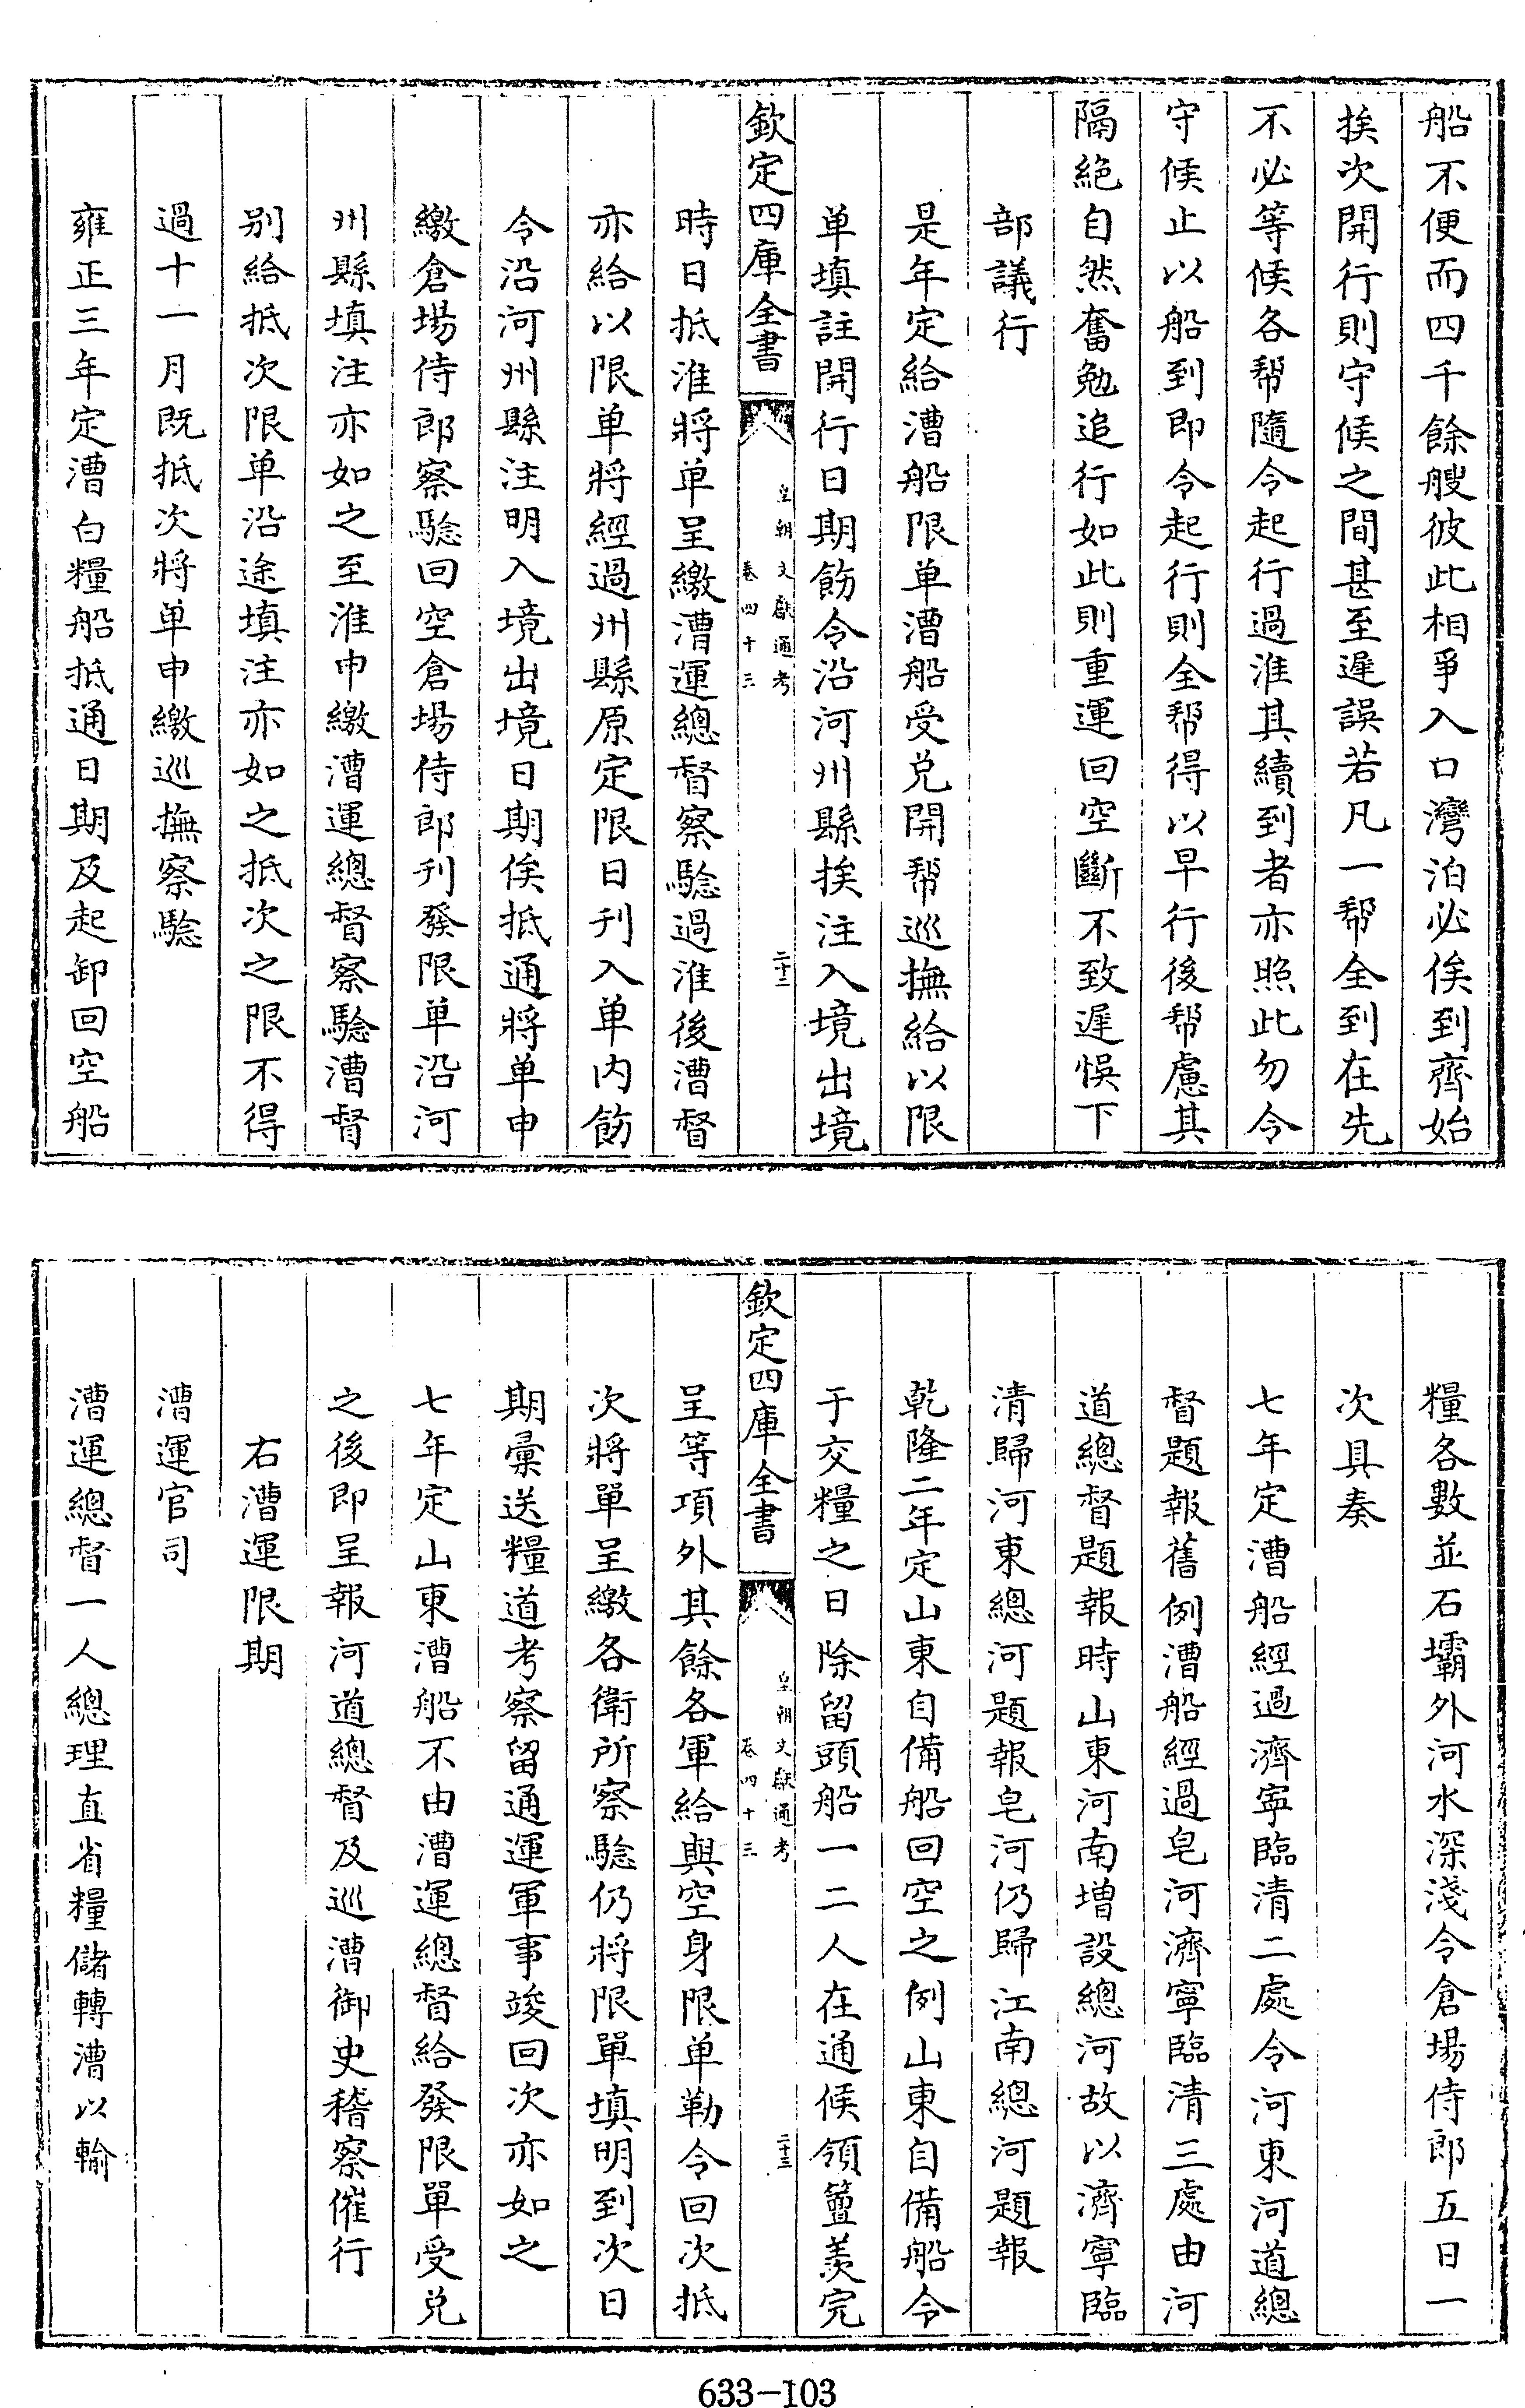 船不便而四千餘艘彼此相爭入口灣泊必俟到齊始
挨次開行則守候之間甚至遲誤若凡一帮全到在先
不必等候各帮隨令起行過淮其續到者亦照此勿令
守候止以船到即令起行則全帮得以早行後帮慮其
隔絶自然奮勉追行如此則重運回空斷不致遲悞下
部議行
是年定給漕船限单漕船受兑開帮巡撫給以限
单填註開行日期飭令沿河州縣挨注入境出境
欽定四庫全書
皇朝文獻通考
卷四十三
二十二
時日抵淮將单呈繳漕運總督察驗過淮後漕督
亦給以限单將經過州縣原定限日刊入单内飭
令沿河州縣注明入境出境日期俟抵通將单申
繳倉場侍郎察驗回空倉場侍郎刊發限单沿河
州縣填注亦如之至淮申繳漕運總督察驗漕督
别給抵次限单沿途填注亦如之抵次之限不得
過十一月既抵次將单申繳巡撫察驗
雍正三年定漕白糧船抵通日期及起卸回空船
糧各數並石壩外河水深淺令倉場侍郎五日一
次具奏
七年定漕船經過濟寧臨清二處令河東河道總
督題報舊例漕船經過皂河濟寧臨清三處由河
道總督題報時山東河南增設總河故以濟寧臨
清歸河東總河題報皂河仍歸江南總河題報
乾隆二年定山東自備船回空之例山東自備船令
于交糧之日除留頭船一二人在通候領簍羨完
欽定四庫全書
皇朝文獻通考
卷四十三
二十三
呈等項外其餘各軍給與空身限单勒令回次抵
次將單呈繳各衛所察驗仍將限單填明到次日
期彙送糧道考察留通運軍事竣回次亦如之
七年定山東漕船不由漕運總督給發限單受兑
之後即呈報河道總督及巡漕御史稽察催行
右漕運限期
漕運官司
漕運總督一人總理直省糧儲轉漕以輸
633-103